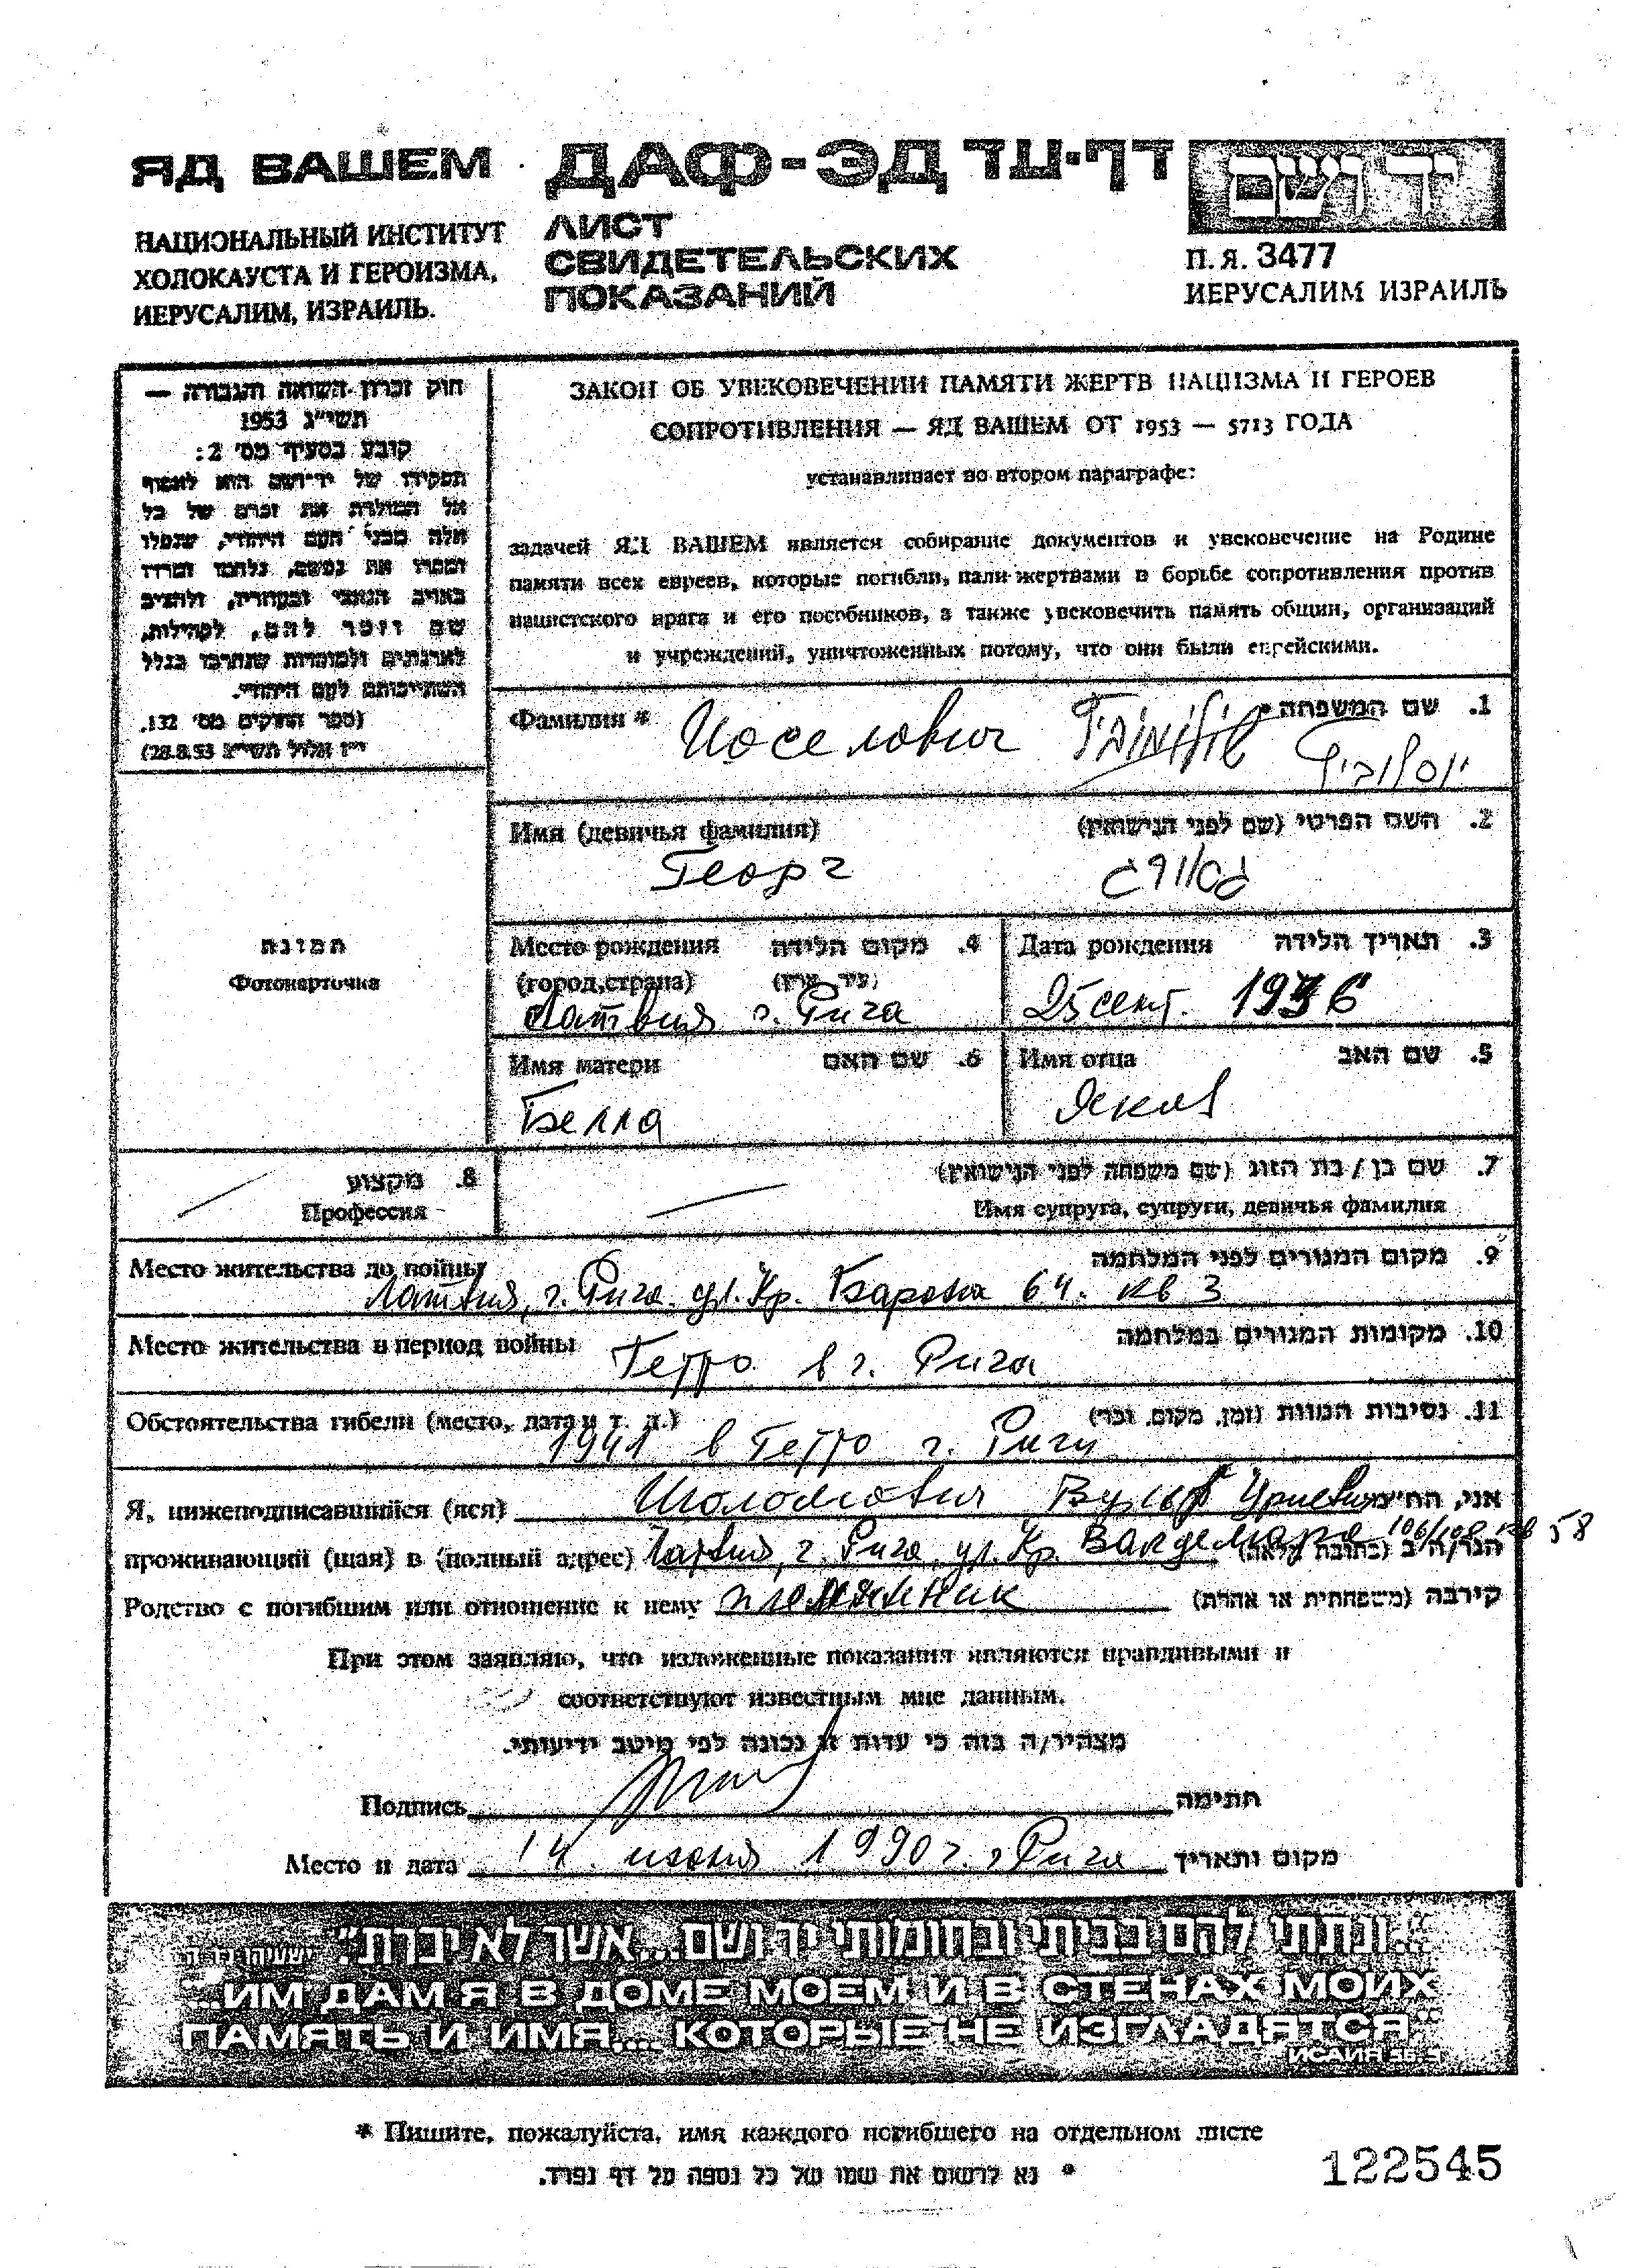 ЯД ВАШЕМ
НАЦИОНАЛЬНЫЙ ИНСТИТУТ
ХОЛОКАУСТА И ГЕРОИЗМА,
ИЕРУСАЛИМ, ИЗРАИЛЬ.
ДАФ-ЭД דף-עד
ЛИСТ
СВИДЕТЕЛЬСКИХ
ПОКАЗАНИЙ
יד ושם
П.Я. 3477
ИЕРУСАЛИМ ИЗРАИЛЬ
חוק זכרון השואה והגבורה —
תשי״ג 1953
קובע בסעיף מס׳ 2:
תפקידו של יד־ושם הוא לאסוף
אל המולדת את זכרם של כל
אלה מבני העם היהודי, שנפלו
ומסרו את נפשם, נלחמו ומרדו
באויב הנאצי ובעוזריו, ולהציב
שם וזכר להם, לקהילות,
לארגונים ולמוסדות שנחרבו בגלל
השתייכותם לעם היהודי.
(ספר החוקים מס׳ 132,
י״ז אלול תשי״ג 28.8.53)
ЗАКОН ОБ УВЕКОВЕЧЕНИИ ПАМЯТИ ЖЕРТВ НАЦИЗМА И ГЕРОЕВ
СОПРОТИВЛЕНИЯ — ЯД ВАШЕМ ОТ 1953 — 5713 ГОДА
устанавливает во втором параграфе:
задачей ЯД ВАШЕМ является собирание документов и увековечение на Родине
памяти всех евреев, которые погибли, пали жертвами в борьбе сопротивления против
нацистского врага и его пособников, а также увековечить память общин, организаций
и учреждений, уничтоженных потому, что они были еврейскими.
Фамилия * Иоселович יוסלוביץ 1. שם המשפחה *
Имя (девичья фамилия) 2. השם הפרטי (שם לפני הנישואין)
Георг גאורג
תמונה
Фотокарточка
Место рождения 4. מקום הלידה
(город, страна) (עיר, ארץ)
Латвия г. Рига
Дата рождения 3. תאריך הלידה
25 сент. 1936
Имя матери 6. שם האם
Белла
Имя отца 5. שם האב
Яков
8. מקצוע
Профессия
7. שם בן / בת הזוג (שם משפחה לפני הנישואין)
Имя супруга, супруги, девичья фамилия
Место жительства до войны 9. מקום המגורים לפני המלחמה
Латвия, г. Рига. ул. Кр. Барона 64. кв 3
Место жительства в период войны 10. מקומות המגורים במלחמה
Гетто в г. Рига
Обстоятельства гибели (место, дата и т. д.) 11. נסיבות המוות (זמן, מקום, וכו׳)
1941 в Гетто г. Риги
Я, нижеподписавшийся (яся) Шоломович Вульф Уриевич אני, הח״מ
проживающий (щая) в (полный адрес) Латвия, г. Рига, ул. Кр. Валдемара 106/108 кв 58 הגר/ה ב (כתובת מלאה)
Родство с погибшим или отношение к нему племянник קירבה (משפחתית או אחרת)
При этом заявляю, что изложенные показания являются правдивыми и
соответствуют известным мне данным.
מצהיר/ה בזה כי עדות זו נכונה לפי מיטב ידיעותי.
Подпись חתימה
Место и дата 14 июня 1990 г. г Рига מקום ותאריך
״...ונתתי להם בביתי ובחומותי יד ושם...אשר לא יכרת״. ישעיהו נו, ה
״...ИМ ДАМ Я В ДОМЕ МОЕМ И В СТЕНАХ МОИХ
ПАМЯТЬ И ИМЯ... КОТОРЫЕ НЕ ИЗГЛАДЯТСЯ״
ИСАИЯ 56.5
* Пишите, пожалуйста, имя каждого погибшего на отдельном листе
* נא לרשום את שמו של כל נספה על דף נפרד.
122545